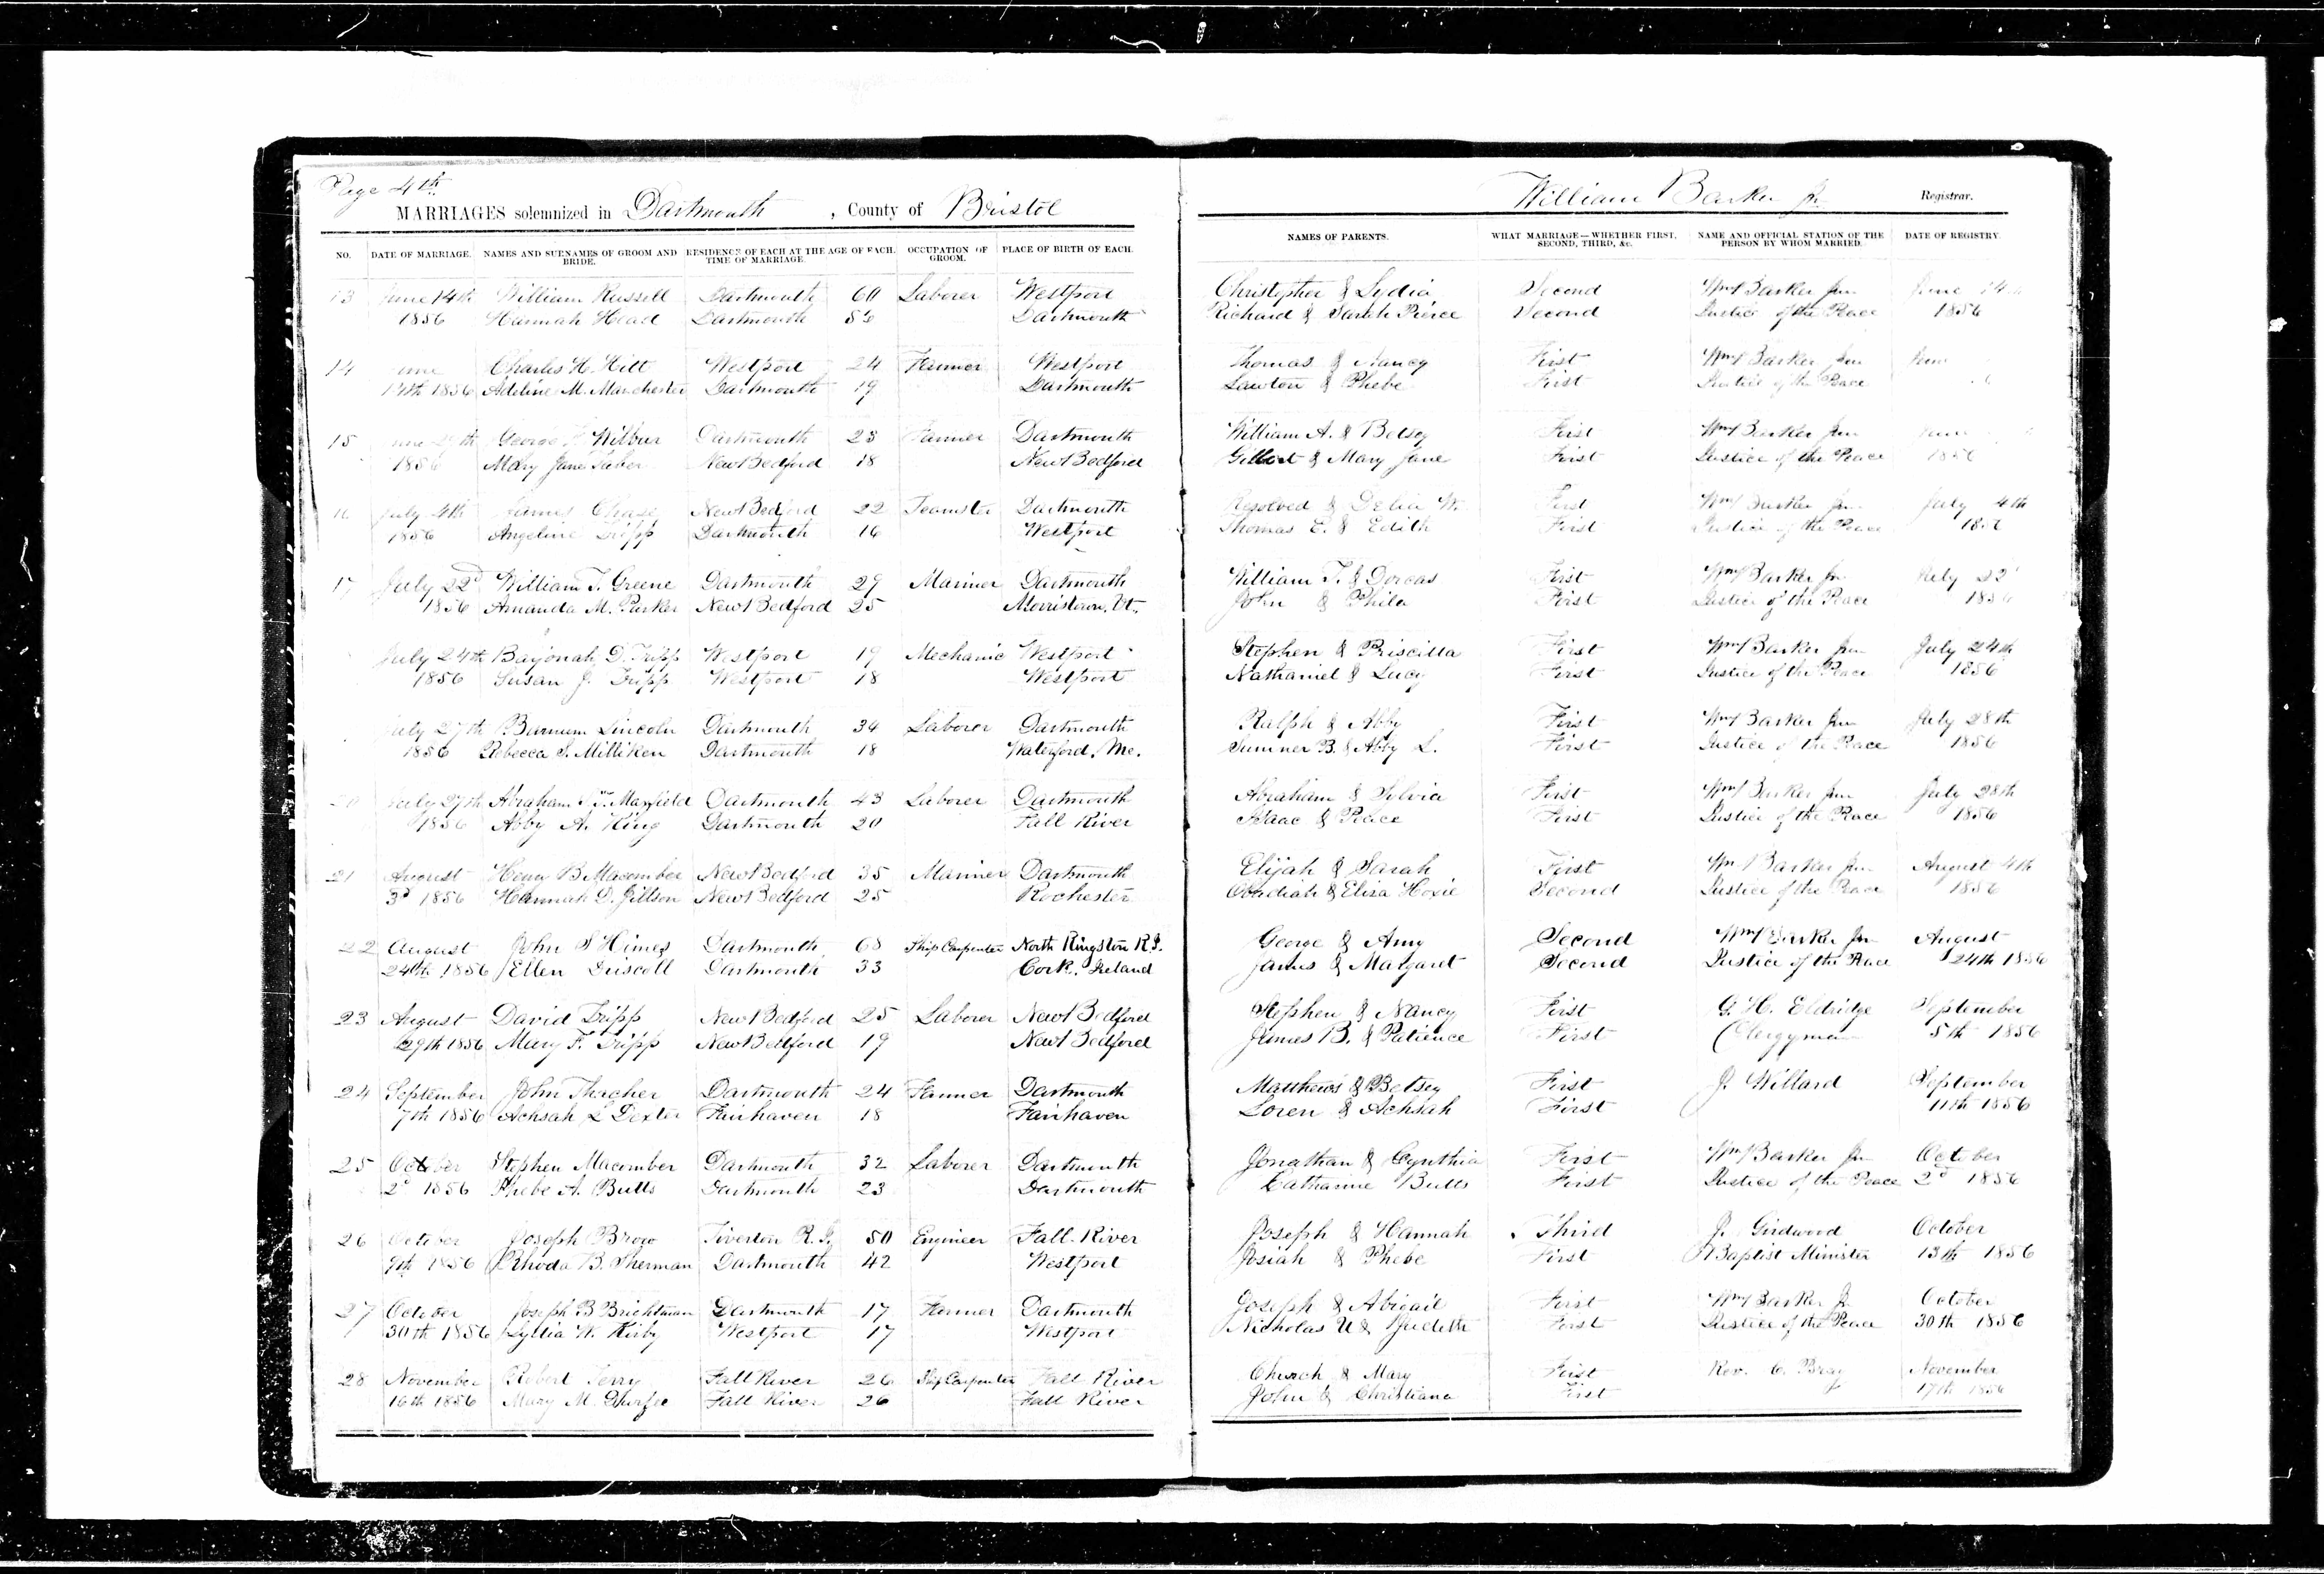 Page 4th
MARRIAGES solemnized in Dartmouth, County of Bristol
William Barker Jr. Registrar.
NO. DATE OF MARRIAGE. NAMES AND SURNAMES OF GROOM AND BRIDE. RESIDENCE OF EACH AT THE TIME OF MARRIAGE. AGE OF EACH. OCCUPATION OF GROOM. PLACE OF BIRTH OF EACH. NAMES OF PARENTS. WHAT MARRIAGE—WHETHER FIRST, SECOND, THIRD, &c. NAME AND OFFICIAL STATION OF THE PERSON BY WHOM MARRIED. DATE OF REGISTRY.
13 June 14th William Russell Dartmouth 60 Laborer Westport Christopher & Lydia Second Wm Barker Jun June 14
1856 Hannah Head Dartmouth 56 Dartmouth Richard & Sarah Pierce Second Justice of the Peace 1856
14 une Charles H. Hitt Westport 24 Farmer Westport Thomas & Nancy First Wm Barker Jun June
14th 1856 Adeline M. Manchester Dartmouth 19 Dartmouth Lawton & Phebe First Justice of the Peace
15 une th George Wilbur Dartmouth 23 Farmer Dartmouth William A. & Betsey First Wm Barker Jun June
1856 Mary Jane Taber New Bedford 18 New Bedford Gilbert & Mary Jane First Justice of the Peace 1856
16 July 4th James Chase New Bedford 22 Teamster Dartmouth Resolved & Delia W. First Wm Barker Jun July 4th
1856 Angeline Tripp Dartmouth 16 Westport Thomas E. & Edith First Justice of the Peace 1856
17 July 22d William T. Greene Dartmouth 29 Mariner Dartmouth William T. & Dorcas First Wm Barker Jr. July 22
1856 Amanda M. Parker New Bedford 25 Morristown, Vt. John & Phila First Justice of the Peace 1856
July 24th Barjonah D. Tripp Westport 19 Mechanic Westport Stephen & Priscilla First Wm Barker Jun July 24th
1856 Susan J. Tripp Westport 18 Westport Nathaniel & Lucy First Justice of the Peace 1856
July 27th Barnum Lincoln Dartmouth 34 Laborer Dartmouth Ralph & Abby First Wm Barker Jun July 28th
1856 Rebecca S. Milliken Dartmouth 18 Waterford, Me. Sumner B. & Abby L. First Justice of the Peace 1856
20 July 27th Abraham Maxfield Dartmouth 43 Laborer Dartmouth Abraham & Silvia First Wm Barker Jun July 28th
1856 Abby A. King Dartmouth 20 Fall River Isaac & Peace First Justice of the Peace 1856
21 August Henry B. Macomber New Bedford 35 Mariner Dartmouth Elijah & Sarah First Wm Barker Jun August 4th
3d 1856 Hannah D. Jillson New Bedford 25 Rochester Obediah & Eliza Hoxie Second Justice of the Peace 1856
22 August John S Himes Dartmouth 68 Ship Carpenter North Kingston R.I. George & Amy Second Wm Barker Jun August
24th 1856 Ellen Driscoll Dartmouth 33 Cork, Ireland James & Margaret Second Justice of the Peace 24th 1856
23 August David Tripp New Bedford 25 Laborer New Bedford Stephen & Nancy First G. H. Eldridge September
29th 1856 Mary F. Tripp New Bedford 19 New Bedford James B. & Patience First Clergyman 5th 1856
24 September John Thacher Dartmouth 24 Farmer Dartmouth Matthews & Betsey First J. Willard September
7th 1856 Achsah L Dexter Fairhaven 18 Fairhaven Loren & Achsah First 11th 1856
25 October Stephen Macomber Dartmouth 32 Laborer Dartmouth Jonathan & Cynthia First Wm Barker Jun October
2d 1856 Phebe A. Butts Dartmouth 23 Dartmouth Catharine Butts First Justice of the Peace 2d 1856
26 October Joseph Brow Tiverton R.I. 50 Engineer Fall River Joseph & Hannah Third J. Girdwood October
9th 1856 Rhoda B. Sherman Dartmouth 42 Westport Josiah & Phebe First A Baptist Minister 13th 1856
27 October Joseph B Brightman Dartmouth 17 Farmer Dartmouth Joseph & Abigail First Wm Barker Jr October
30th 1856 Lydia W. Kirby Westport 17 Westport Nicholas U & Judeth First Justice of the Peace 30th 1856
28 November Robert Terry Fall River 26 Ship Carpenter Fall River Church & Mary First Rev. C. Bray November
16th 1856 Mary M. Thurfee Fall River 26 Fall River John & Christiana First 17th 1856